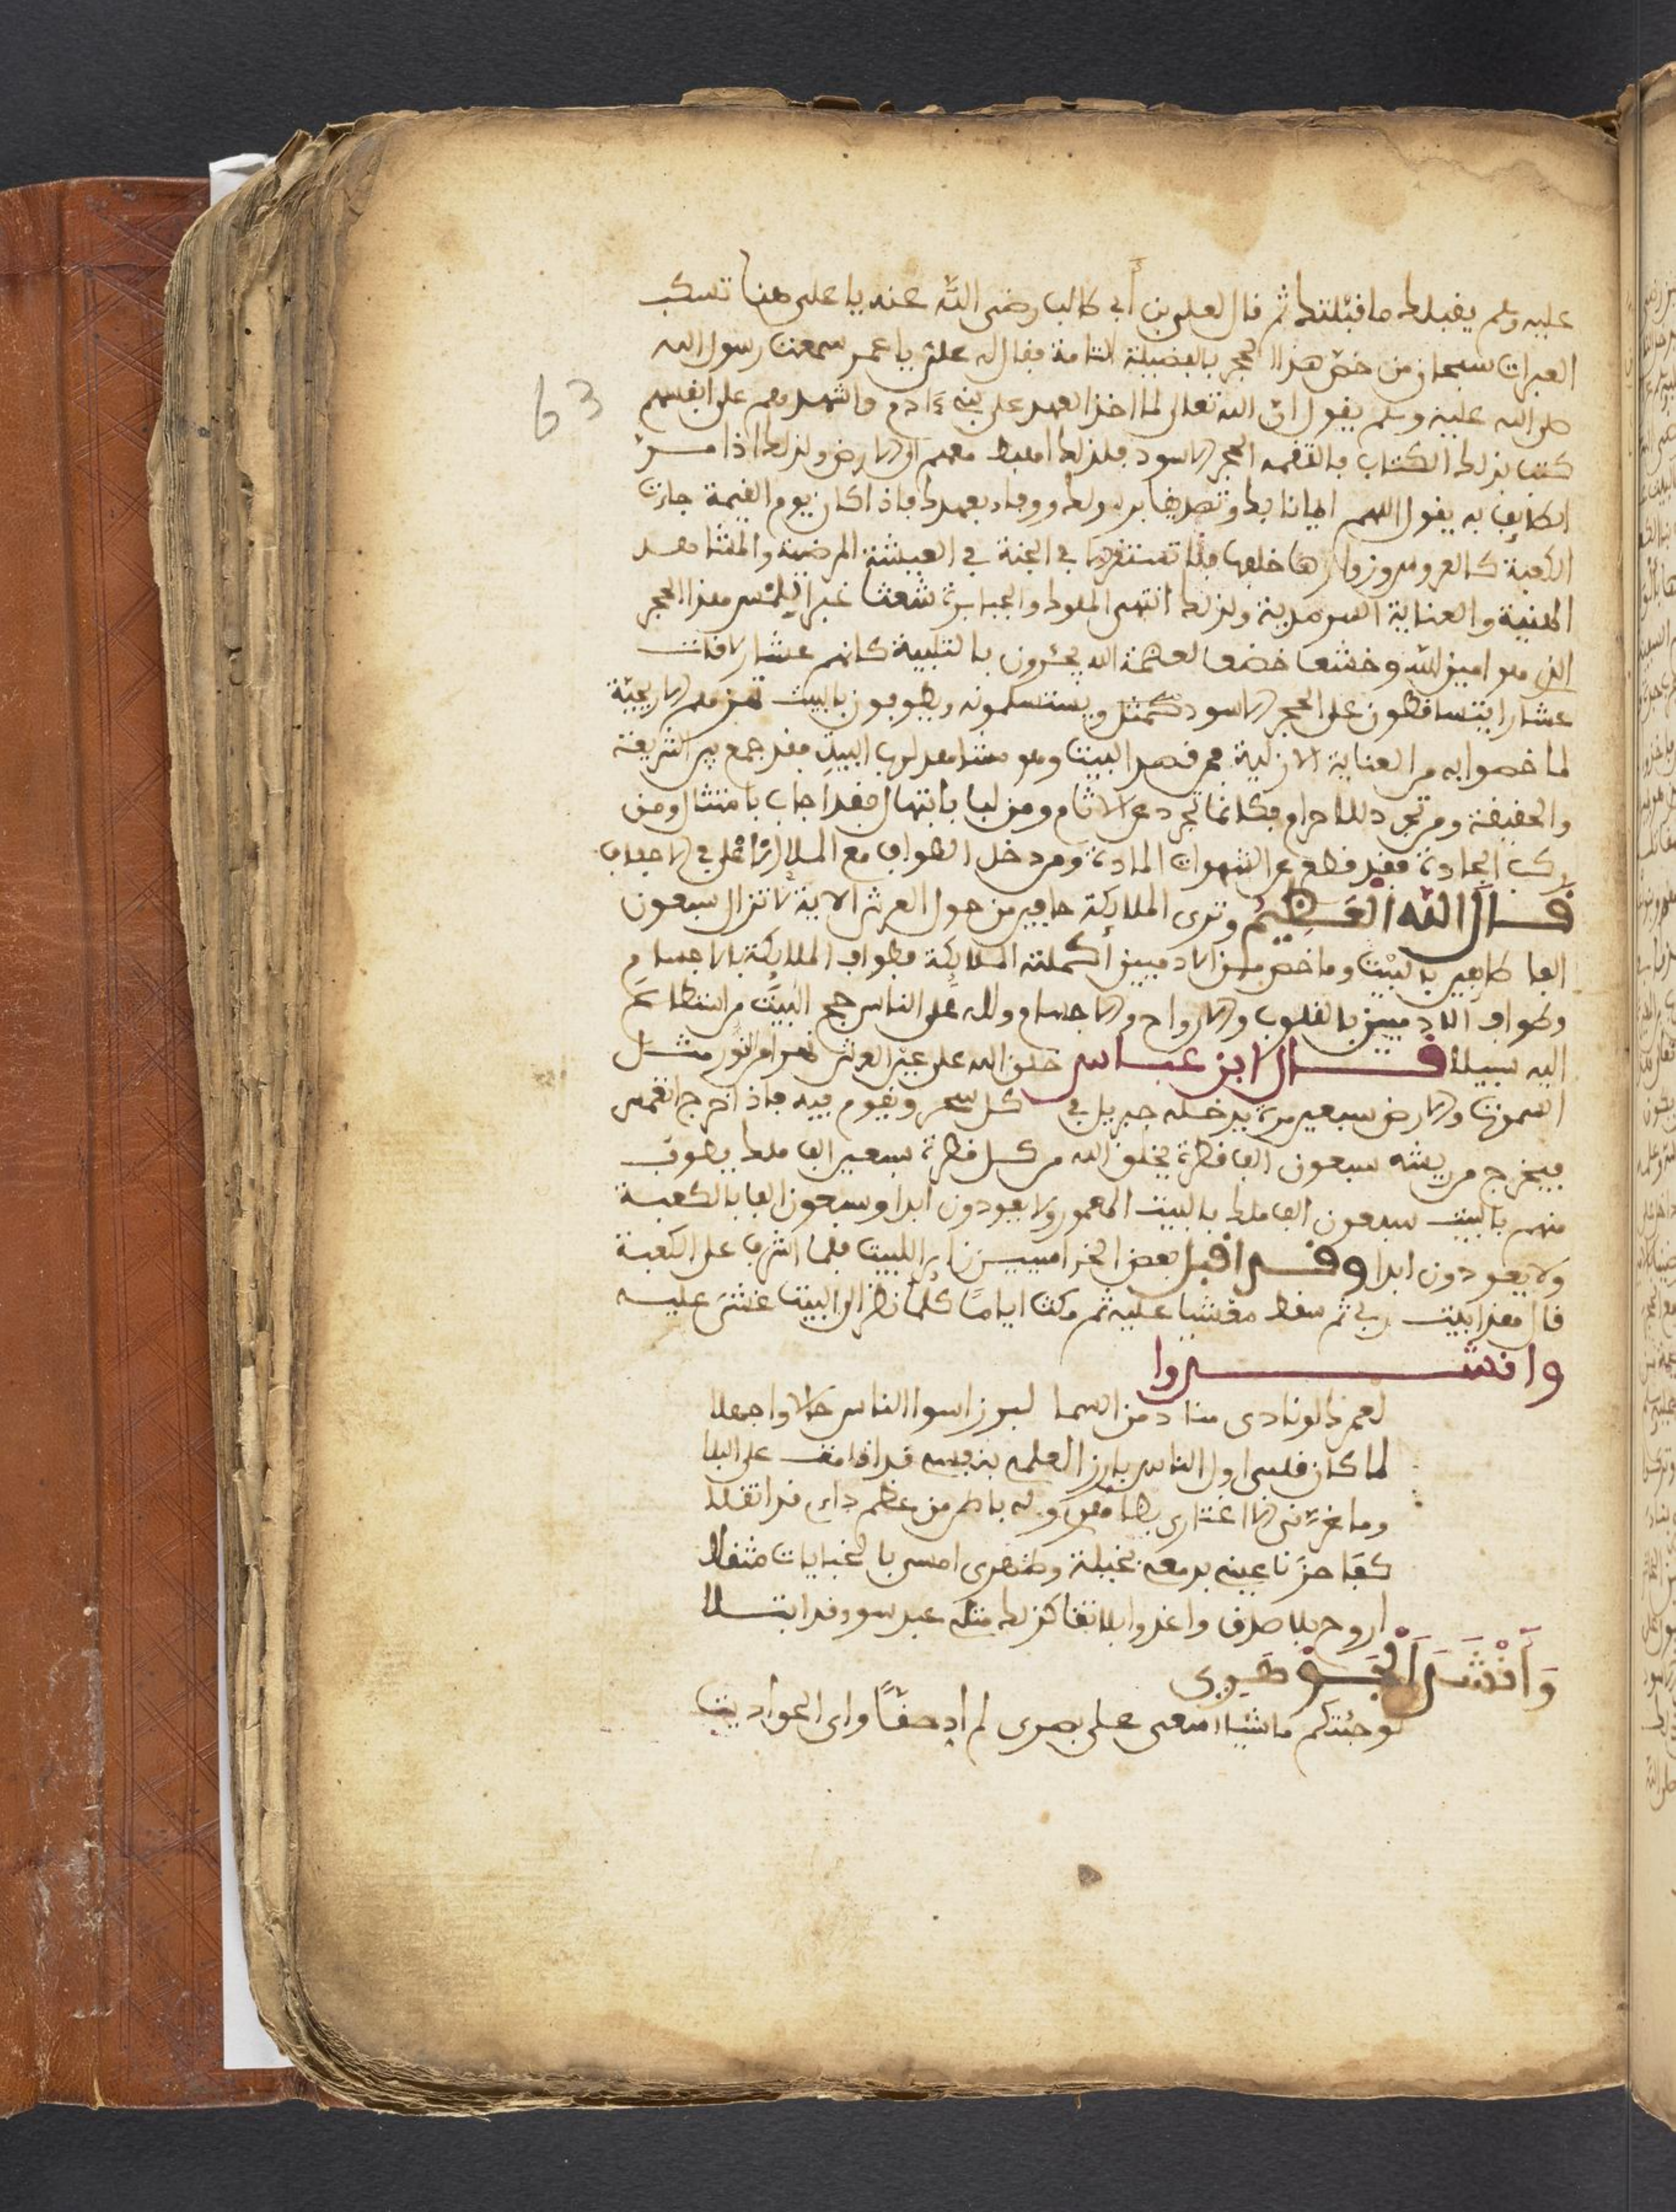 عليه وسلم يقبلك ما قبلتك ثم قال لعلي بن أبي طالب رضي الله عنه يا علي هنا تسكب
العبرات سبحان من خص هذا الحجر بالفضيلة التامة فقال له علي يا عمر سمعت رسول الله
صلى الله عليه وسلم يقول ان الله تعلى لما اخذ العهد على بني ءادم واشهدهم على انفسهم
كتب بذلك الكتاب فالتقمه الحجر الاسود فلذلك اهبط معهم الى الارض ولذلك اذا مر
الطايف به يقول اللهم ايمانا بك وتصديقا برسولك ووفاء بعهدك فاذا كان يوم القيمة جاءت
الكعبة كالعروس وزوارها خلفها فلا تستقر الا في الجنة في العيشة المرضية والمشاهد
السنية والعناية السرمدية ولذلك انتهى الملوك والجبابرة شعثا غبرا للمس هذا الحجر
الذي هو امين الله وخشعا خضعا لعظمة الله يجئرون بالتلبية كانهم عشار لاقت
عشارا يتساقطون على الحجر الاسود ويستسلمونه ويطوفون بالبيت تهزهم الاريحية
لما خصوا به من العناية الازلية فمن قصد البيت وهو مشاهد لرب البيت فقد جمع بين الشريعة
والحقيقة ومن تجرد للاحرام فكانما تجرد عن الاثام ومن لبا بابتهال فقد اجاب بامتثال ومن
ركب الجادة فقد قطع عن الشهوات المادة ومن دخل الطواف مع الملا الاعلى في الاحفاف
قال الله العظيم وترى الملايكة حافين من حول العرش الاية لا تزال سبعون
الفا طايفين بالبيت وما خص من الادميين اكملته الملايكة فطواف الملايكة بالاجسام
وطواف الادميين بالقلوب والارواح والاجسام ولله على الناس حج البيت من استطاع
اليه سبيلا قال ابن عباس خلق الله على يمين العرش نهرا من نور مثل
السموات والارض سبعين مرة يدخله جبريل في كل سحر ويقوم فيه فاذا خرج انغمس
فيخرج من ريشه سبعون الف قطرة يخلق الله من كل قطرة سبعين الف ملك يطوف
منهم بالبيت سبعون الف ملك بالبيت المعمور ولا يعودون ابدا وسبعون الفا بالكعبة
ولا يعودون ابدا وقد اقبل بعض الخراسيين زاير البيت فلما اشرف على الكعبة
قال هذا بيت ربي ثم سقط مغشيا عليه ثم مكث اياما كلما نظر الى البيت غشي عليه
وانشدوا
لعمرك لو نادى مناد من السما ليبرز اسوا الناس حالا واجهلا
لما كان قلبي اول الناس بارز العلمي بنفسي قد اقامت على البلا
وما غرني الا اغتراري بظاهري وله باطن من عظم داء قد اثقلا
كفا حزنا عيني بدمعي بخيلة وظهري امسى بالخبايات مثقلا
اروح بلا صرف واغدوا بلا تقا كذلك مثلي عبد سوء قد ابتلا
وأنشد الجوهري
لو جئتكم ماشيا اسعى على بصري لم اد حقا واي الحق اديت